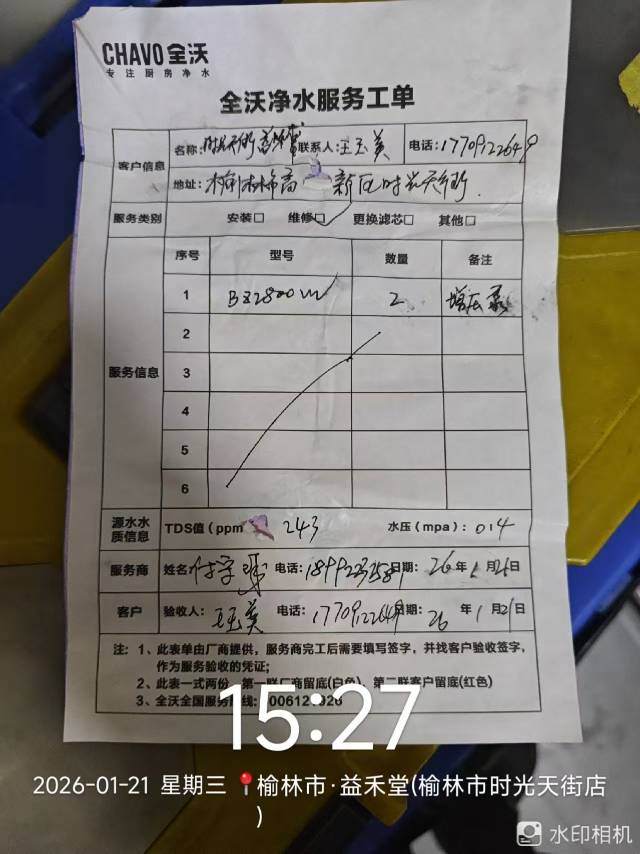 CHAVO 全沃
专注厨房净水
全沃净水服务工单
客户信息 名称: 时光天街 联系人: 王玉美 电话: 17709122649
地址: 榆林榆高新区时光天街.
服务类别 安装□ 维修□✓ 更换滤芯□ 其他□
服务信息 序号 型号 数量 备注
1 2 增压泵
2
3
4
5
6
源水水质信息 TDS值(ppm 243 水压(mpa): 014
服务商 姓名 电话: 日期: 26年1月21日
客户 验收人: 王玉美 电话: 17709122649 日期: 26年1月21日
注: 1、此表单由厂商提供，服务商完工后需要填写签字，并找客户验收签字，
作为服务验收的凭证;
2、此表一式两份，第一联厂商留底(白色)、第二联客户留底(红色)
3、全沃全国服务热线:
15:27
2026-01-21 星期三 榆林市·益禾堂(榆林市时光天街店
)
水印相机